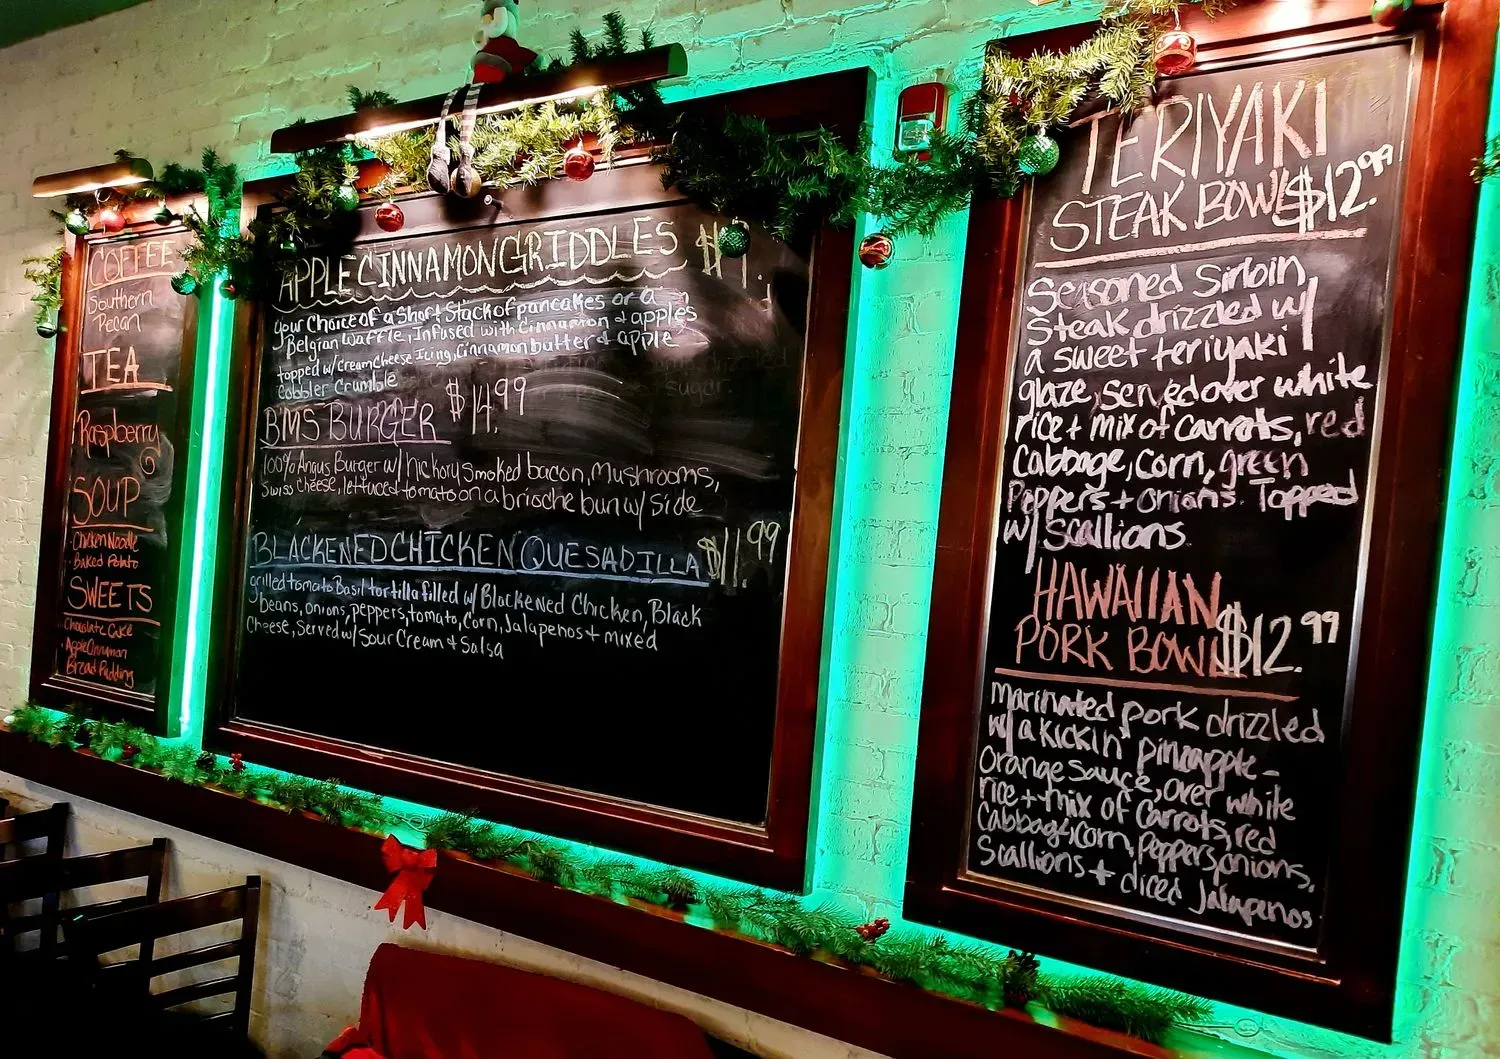 COFFEE
Southern
Pecan
TEA
Raspberry
SOUP
· Chicken Noodle
· Baked Potato
SWEETS
· Chocolate Cake
· Apple Cinnamon
Bread Pudding
APPLE CINNAMON GRIDDLES
your Choice of a Short Stack of pancakes or a
Belgian Waffle, Infused with Cinnamon & apples
topped w/ Cream Cheese Icing, Cinnamon butter & apple
Cobbler Crumble
BMS BURGER $14.99
100% Angus Burger w/ hickory smoked bacon, Mushrooms,
Swiss cheese, lettuce & tomato on a brioche bun w/ Side
BLACKENED CHICKEN QUESADILLA $11.99
grilled tomato Basil tortilla filled w/ Blackened Chicken, Black
beans, onions, peppers, tomato, Corn, Jalapenos + mixed
Cheese, Served w/ Sour Cream & Salsa
TERIYAKI
STEAK BOWL $12.99
Seasoned Sirloin
Steak drizzled w/
a sweet teriyaki
glaze, served over white
rice + mix of Carrots, red
Cabbage, Corn, green
Peppers + onions. Topped
w/ Scallions.
HAWAIIAN
PORK BOWL $12.99
Marinated pork drizzled
w/ a kickin' pineapple-
Orange Sauce, over white
rice + mix of Carrots, red
Cabbage, corn, peppers, onions,
Scallions + diced Jalapenos